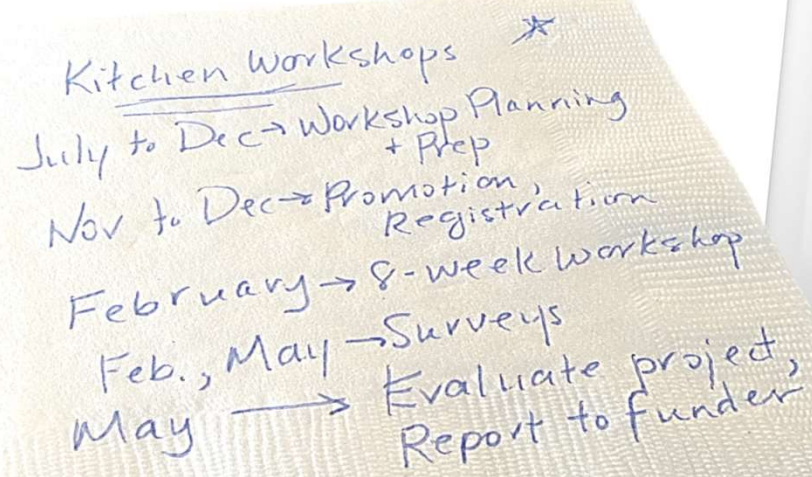 Kitchen Workshops
July to Dec → Workshop Planning
+ Prep
Nov to Dec → Promotion,
Registration
February → 8-week workshop
Feb., May → Surveys
May → Evaluate project,
Report to funder